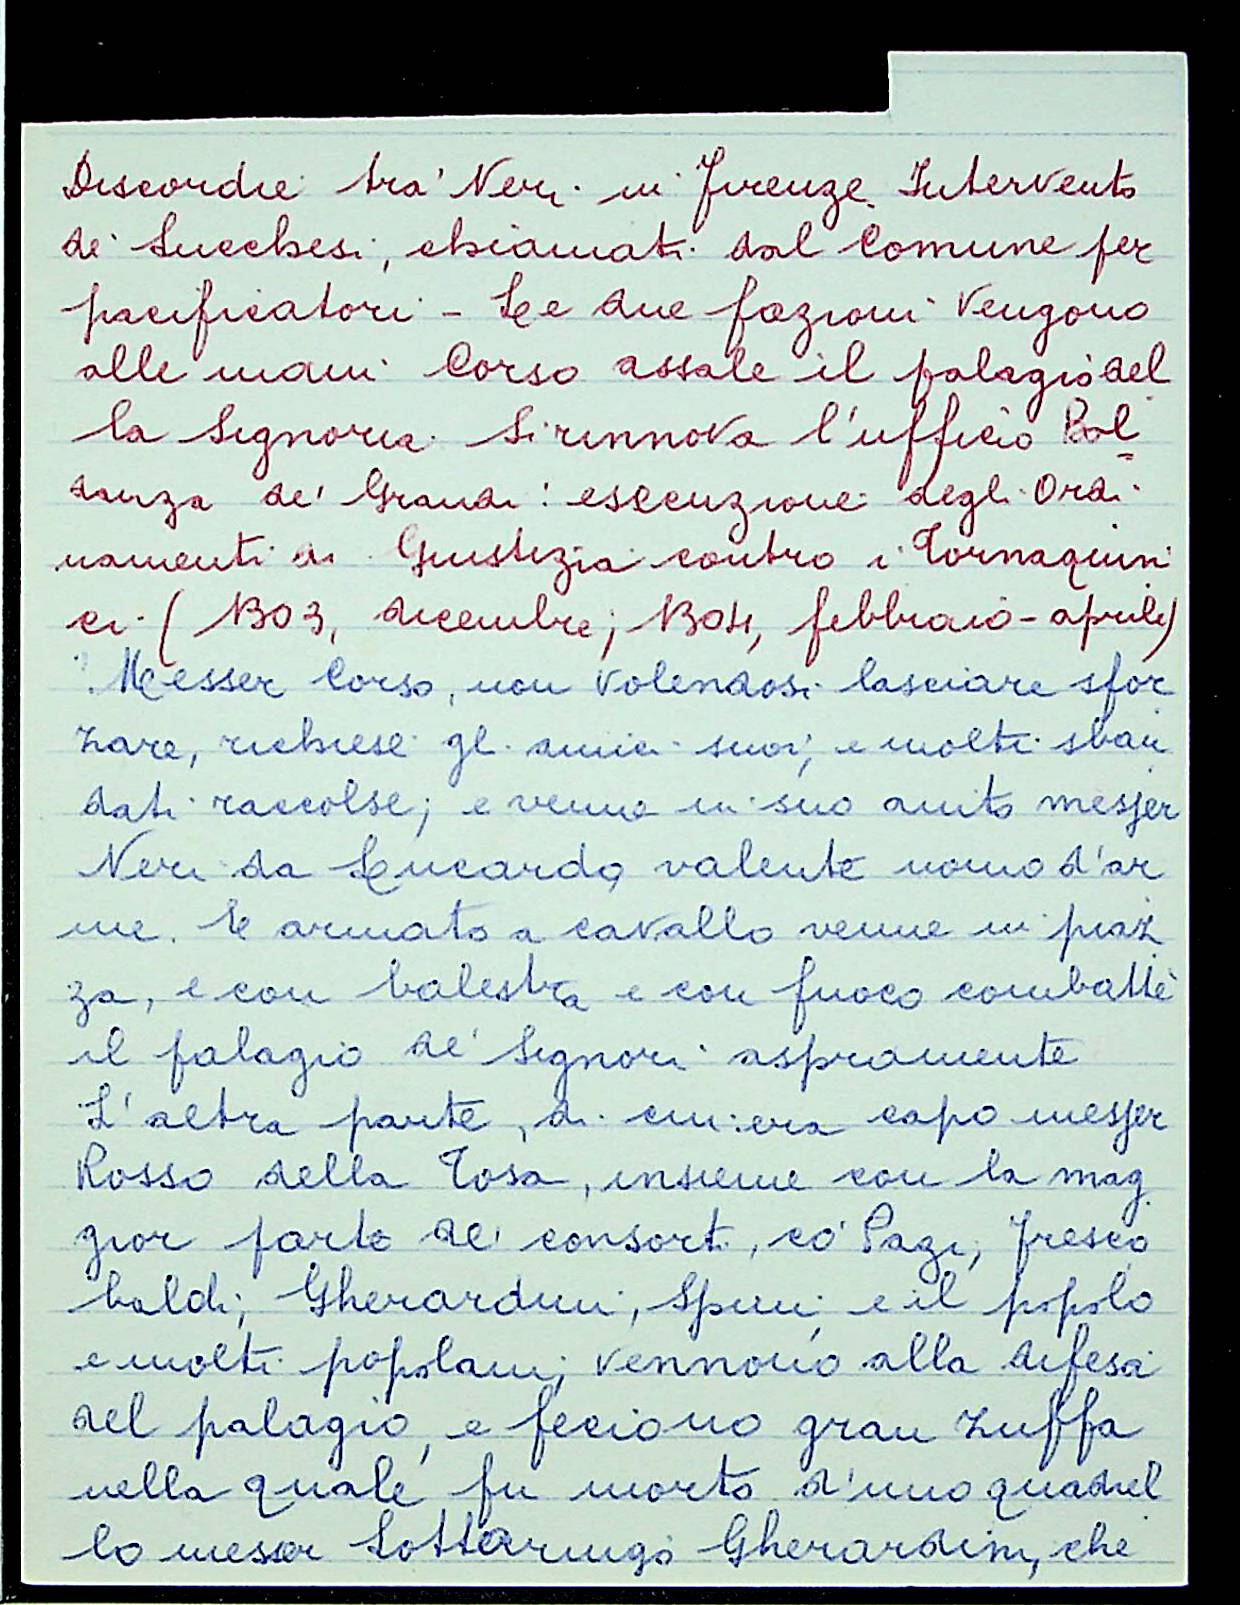 Discordie tra' Neri in Firenze. Intervento
de' Lucchesi, chiamati dal Comune per
pacificatori - Le due fazioni vengono
alle mani Corso assale il palagio del
la Signoria. Si rinnova l'ufficio Bal
danza de' Grandi: esecuzione degli Ordi
namenti di Giustizia contro i Tornaquin
ci (1303, dicembre; 1304, febbraio - aprile)
Messer Corso, non volendosi lasciare sfor
zare, richiese gl. amici suoi, e molti sban
dati raccolse; e venne in suo aiuto messer
Neri da Lucardo, valente uomo d'ar
me. E armato a cavallo venne in piaz
za, e con balestra e con fuoco combattè
il palagio de' Signori aspramente
L'altra parte, di cui era capo messer
Rosso della Tosa, insieme con la mag
gior parte de' consorti, co' Pazi, Fresco
baldi, Gherardini, Spini, e il popolo
e molti popolani, vennono alla difesa
del palagio, e feciono gran zuffa
nella quale fu morto d'uno quadrel
lo messer Lotteringo Gherardini, che